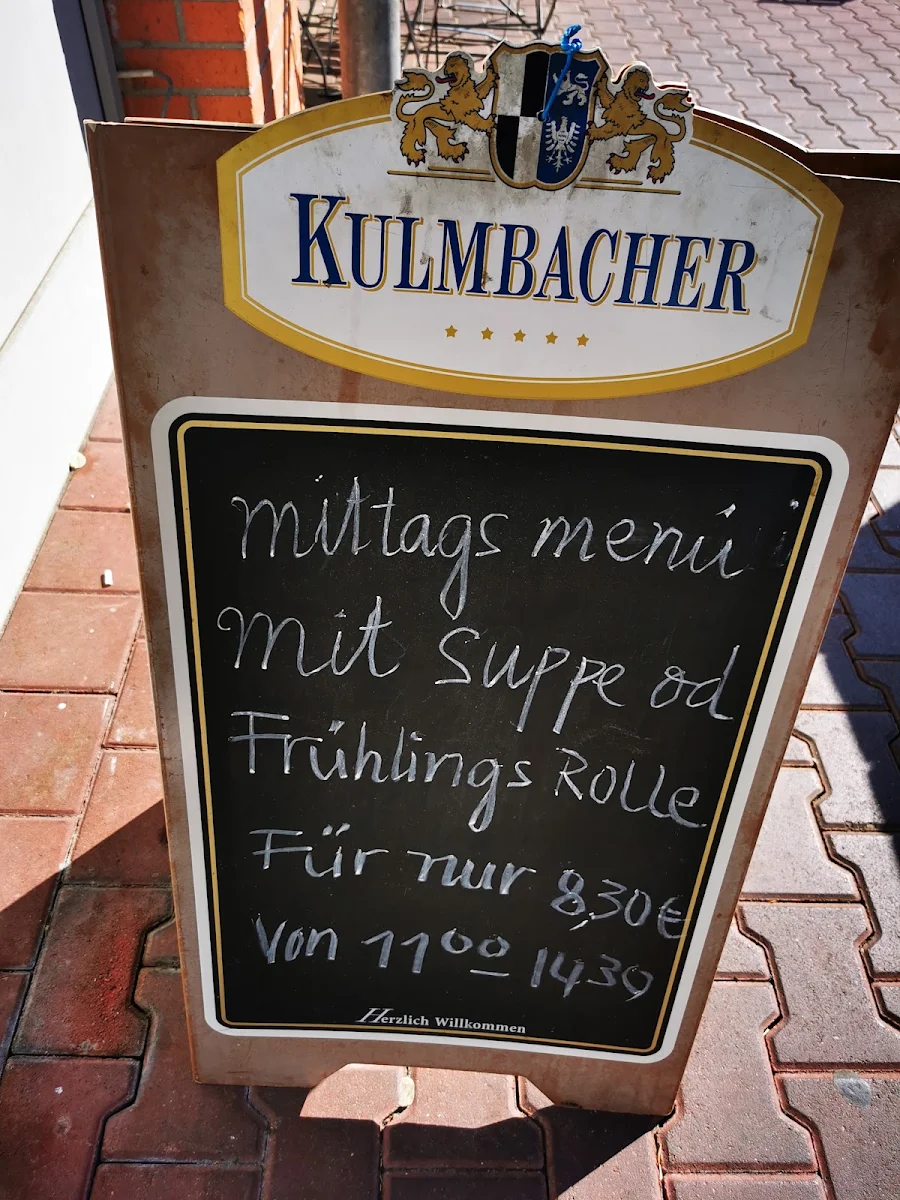 KULMBACHER
mittags menü
mit suppe od
Frühlings Rolle
Für nur 8,30€
Von 11⁰⁰ 1430
Herzlich Willkommen